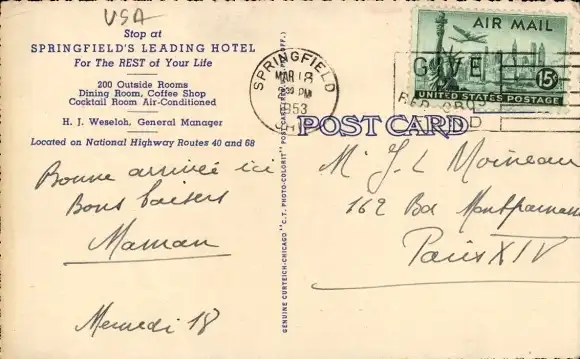 USA
Stop at
SPRINGFIELD'S LEADING HOTEL
For The REST of Your Life
200 Outside Rooms
Dining Room, Coffee Shop
Cocktail Room Air-Conditioned
H. J. Weseloh, General Manager
Located on National Highway Routes 40 and 68
Bonne arrivée ici
Bons baisers
Maman
Mercredi 18
GENUINE CURTEICH-CHICAGO "C.T. PHOTO-COLORIT" POST CARD
SPRINGFIELD
MAR 18
PM
1953
AIR MAIL
15¢
UNITED STATES POSTAGE
GIVE
RED CROSS
POST CARD
Mr J. L Moineau
162 Bd Montparnasse
Paris XIV